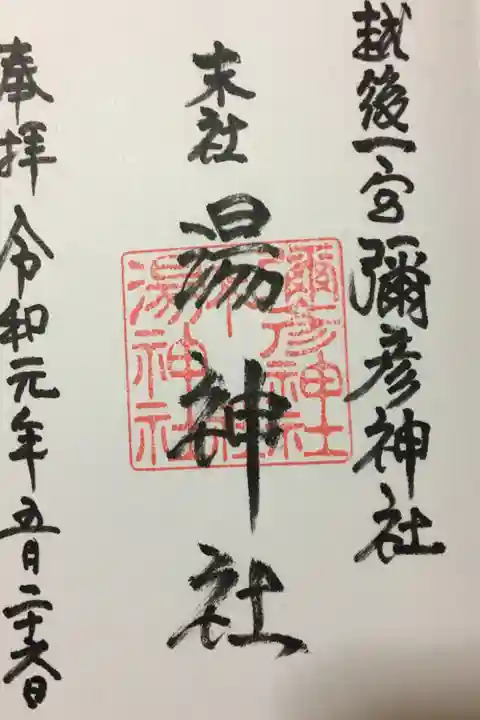 越後一宮彌彦神社
末社
湯神社
彌彦神社
末社
湯神社
奉拝 令和元年五月二十六日